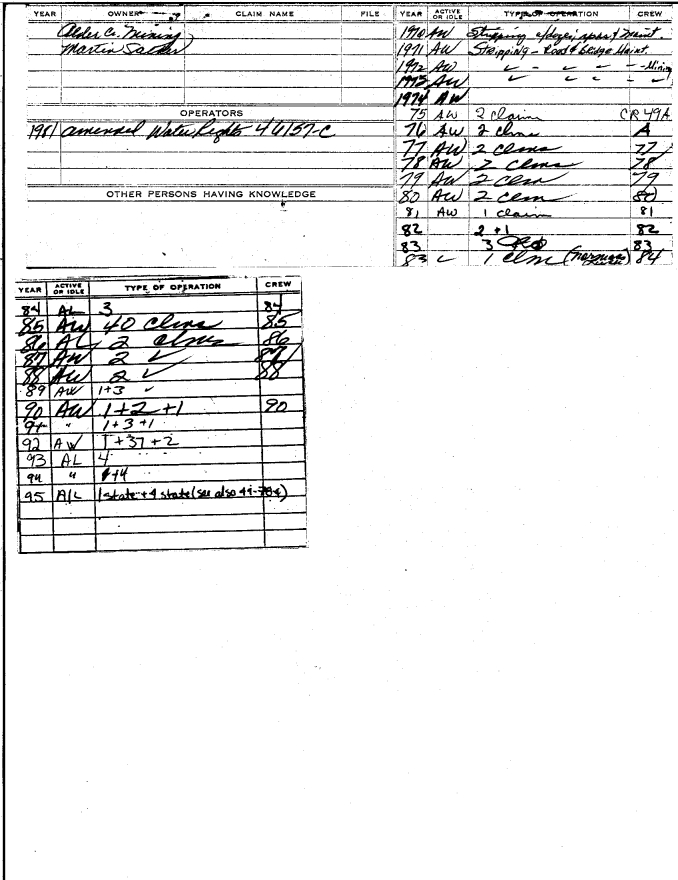 YEAR OWNER CLAIM NAME FILE
Alder Cr. Mining
Martin
OPERATORS
1981 amended Water Rights 46157-C
OTHER PERSONS HAVING KNOWLEDGE
YEAR ACTIVE OR IDLE TYPE OF OPERATION CREW
1970 AW Stripping w/dozer; Maint.
1971 AW Stripping - Road & bridge Maint.
1972 AW ✓ - ✓ - - Mining
1973 AW ✓ ✓ ✓ - ✓
1974 AW
75 AW 2 claim CR 49A
76 AW 2 clms A
77 AW 2 clms 77
78 AW 2 clms 78
79 AW 2 clm 79
80 AW 2 clm 80
81 AW 1 claim 81
82 2+1 82
83 3 83
83 ✓ 1 clm 84
YEAR ACTIVE OR IDLE TYPE OF OPERATION CREW
84 AL 3 84
85 AW 40 clms 85
86 AL 2 clms 86
87 AW 2 ✓ 87
88 AW 2 ✓ 88
89 AW 1+3 ✓
90 AW 1+2+1 90
91 " 1+3+1
92 AW 1+37+2
93 AL 4
94 " 1+4
95 A/L 1 state + 4 state (see also